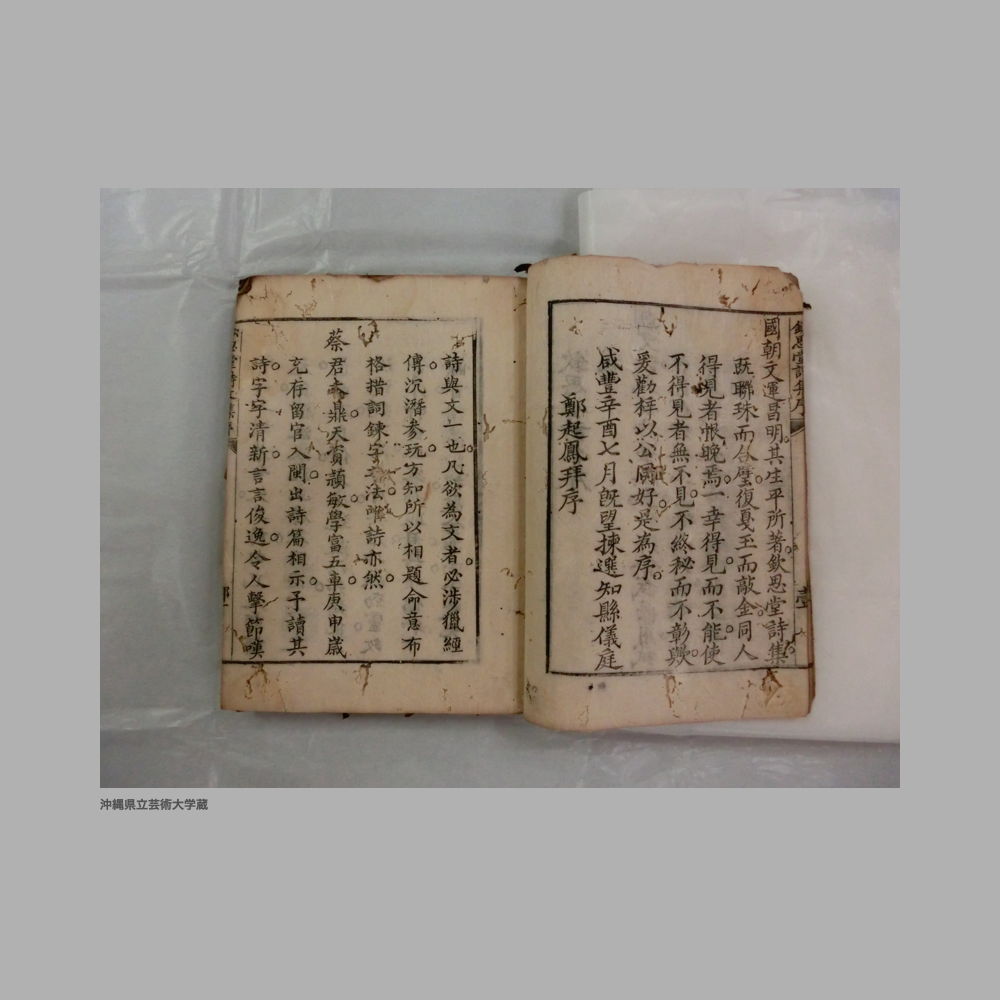 國朝文運昌明其生平所著欽思堂詩集
既聯珠而合璧復戛玉而敲金同人
得見者恨晚焉一幸得見而不能使
不得見者無不見不終秘而不彰歟
爰勸梓以公同好是為序
咸豐辛酉七月既望揀選知縣儀庭
鄭起鳳拜序
詩與文一也凡欲為文者必涉獵經
傳沉潛參玩方知所以相題命意布
格措詞鍊字之法唯詩亦然
蔡君 鼎天資穎敏學富五車庚申歲
充存留官入閩出詩篇相示予讀其
詩字字清新言言俊逸令人擊節嘆
沖縄県立芸術大学蔵